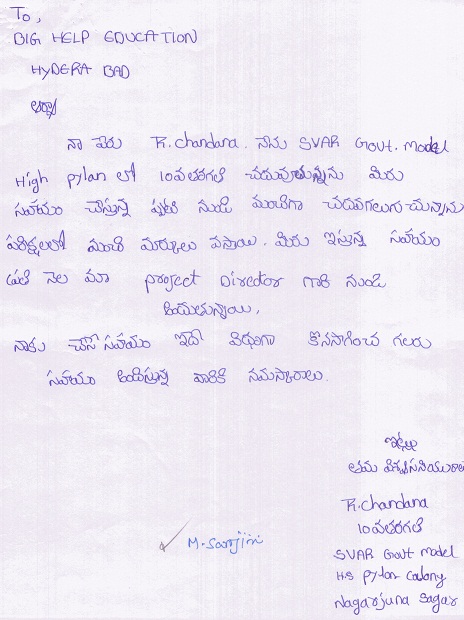 To,
BIG HELP EDUCATION
HYDERA BAD
ఆర్యా
నా పేరు R.chandana. నేను SVAR Govt. Model
High pylan లో 10వతరగతి చదువుతున్నను మీరు
సహాయం చేస్తున్న నుండి మంచిగా చదవగలుగుచున్నాను
పరీక్షలలో మంచి మార్కులు వస్తాయి. మీరు ఇస్తున్న సహాయం
ప్రతి నెల మా project Director గారి నుండి
అందుతున్నాయి,
నాకు చేసే సహాయం ఇదే విధంగా కొనసాగించ గలరు
సహాయం అందిస్తున్న వారికి నమస్కారాలు.
ఇట్లు
తమ
R.chandana
10వతరగతి
SVAR Govt model
H.S pylon Coalony
Nagarjuna Sagar